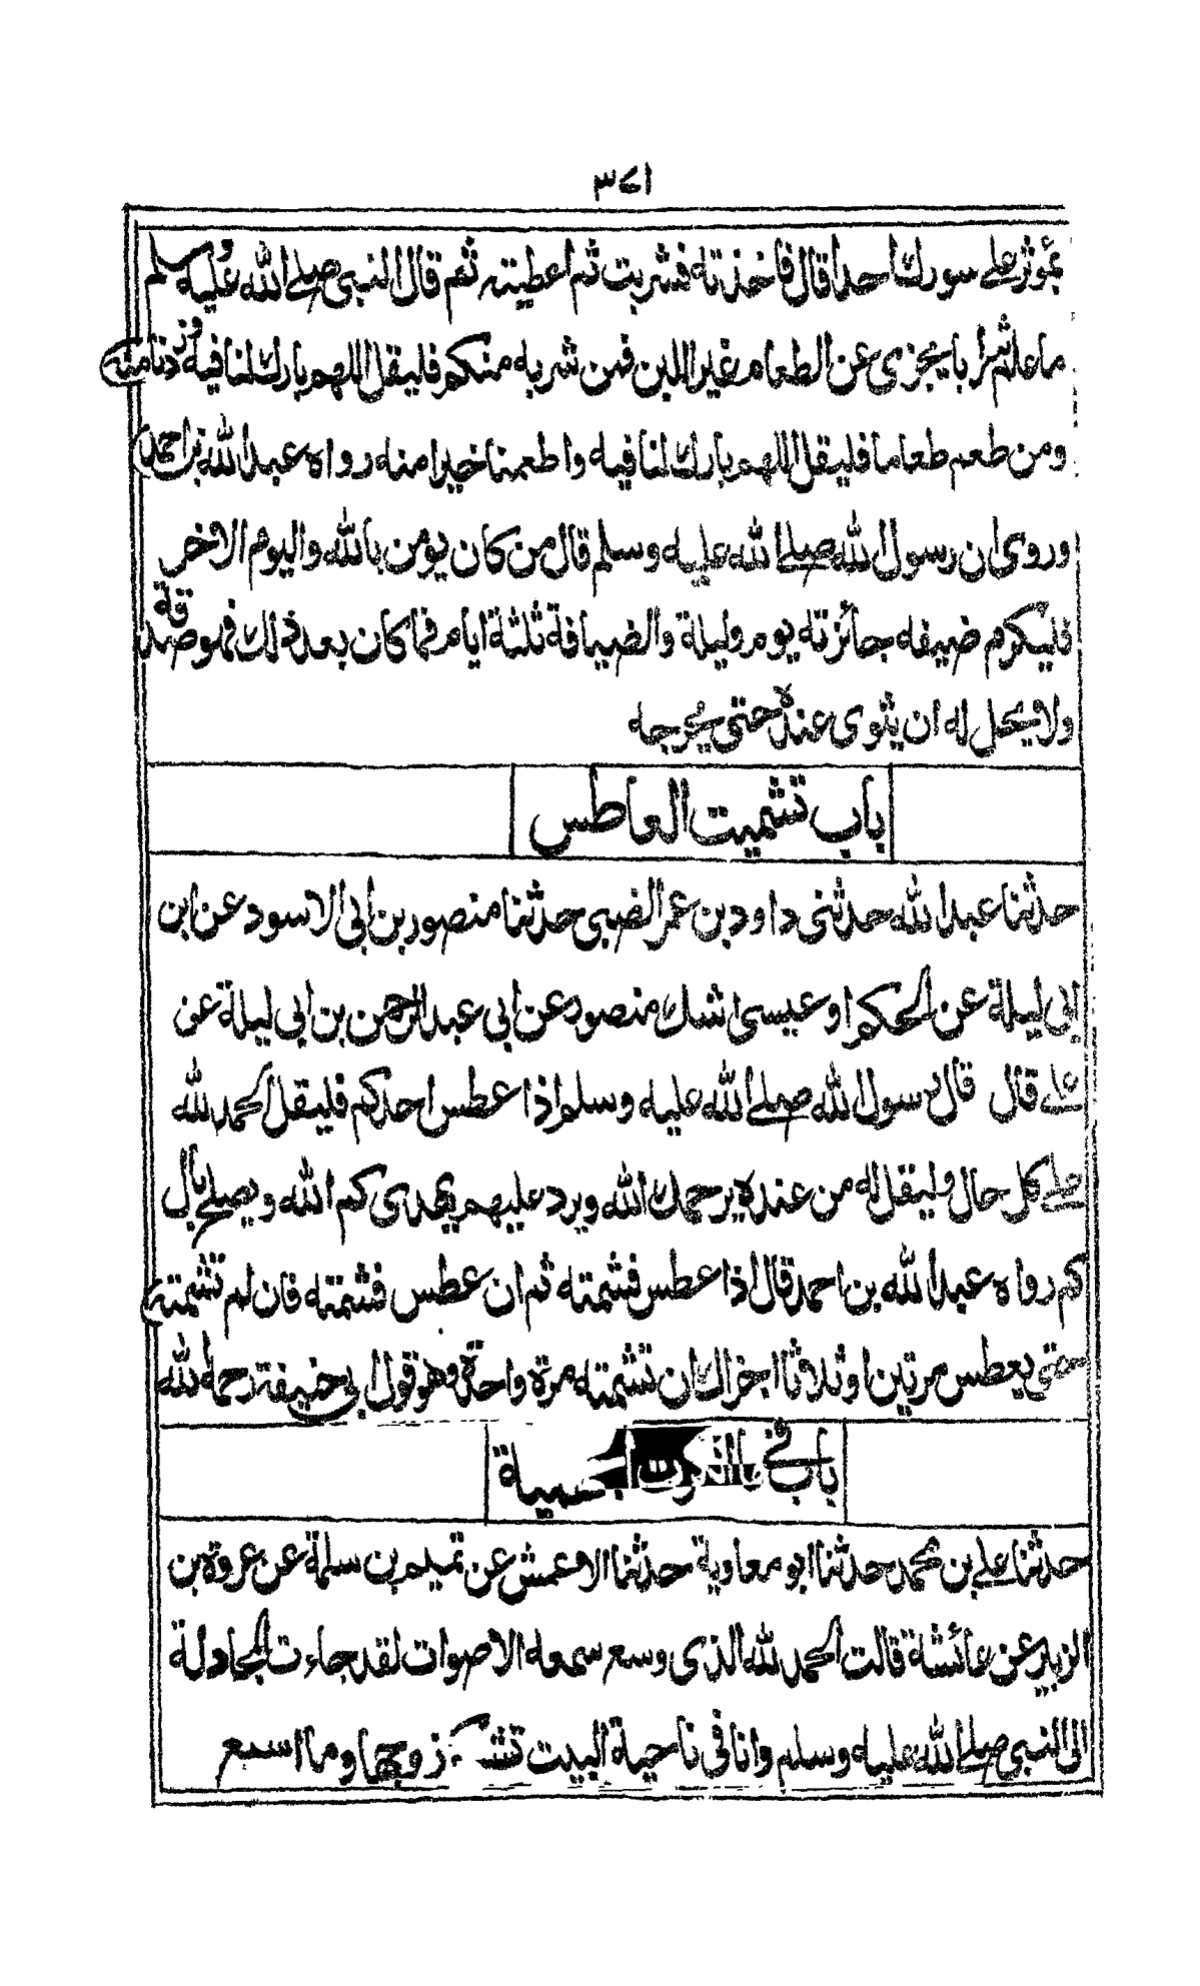 ٣٧١
بموثر على سورك احدا قال فاخذته فشربت ثم اعطيته ثم قال النبى صلى الله عليه وسلم
ما علم شرابا يجزى عن الطعام غير اللبن فمن شربه منكم فليقل اللهم بارك لنا فيه وزدنا منه
ومن طعم طعاما فليقل اللهم بارك لنا فيه واطعمنا خيرا منه رواه عبد الله بن احمد
وروى ان رسول الله صلى الله عليه وسلم قال من كان يومن بالله واليوم الاخر
فليكرم ضيفه جائزته يوم وليلة والضيافة ثلثة ايام فما كان بعد ذلك فهو صدقة
ولا يحل له ان يثوى عنده حتى يحرجه
باب تشميت العاطس
حدثنا عبد الله حدثنى داود بن عمر الضبى حدثنا منصور بن ابى الاسود عن ابن
ابى ليلة عن الحكم او عيسى شك منصور عن ابى عبد الرحمن بن ابى ليلة عن
على قال قال رسول الله صلى الله عليه وسلم اذا عطس احدكم فليقل الحمد لله
على كل حال وليقل له من عنده يرحمك الله ويرد عليهم يهدى كم الله ويصلح بال
كم رواه عبد الله بن احمد قال اذا عطس فشمته ثم ان عطس فشمته فان لم تشمته
حتى يعطس مرتين او ثلاثا اجزاك ان تشمته مرة واحدة وهو قول ابى حنيفة رحمه الله
باب فى
حدثنا على بن محمد حدثنا ابو معاوية حدثنا الاعمش عن تميم بن سلمة عن عروة بن
الزبير عن عائشة قالت الحمد لله الذى وسع سمعه الاصوات لقد جاءت المجادلة
الى النبى صلى الله عليه وسلم وانا فى ناحية البيت زوجها وما اسمع